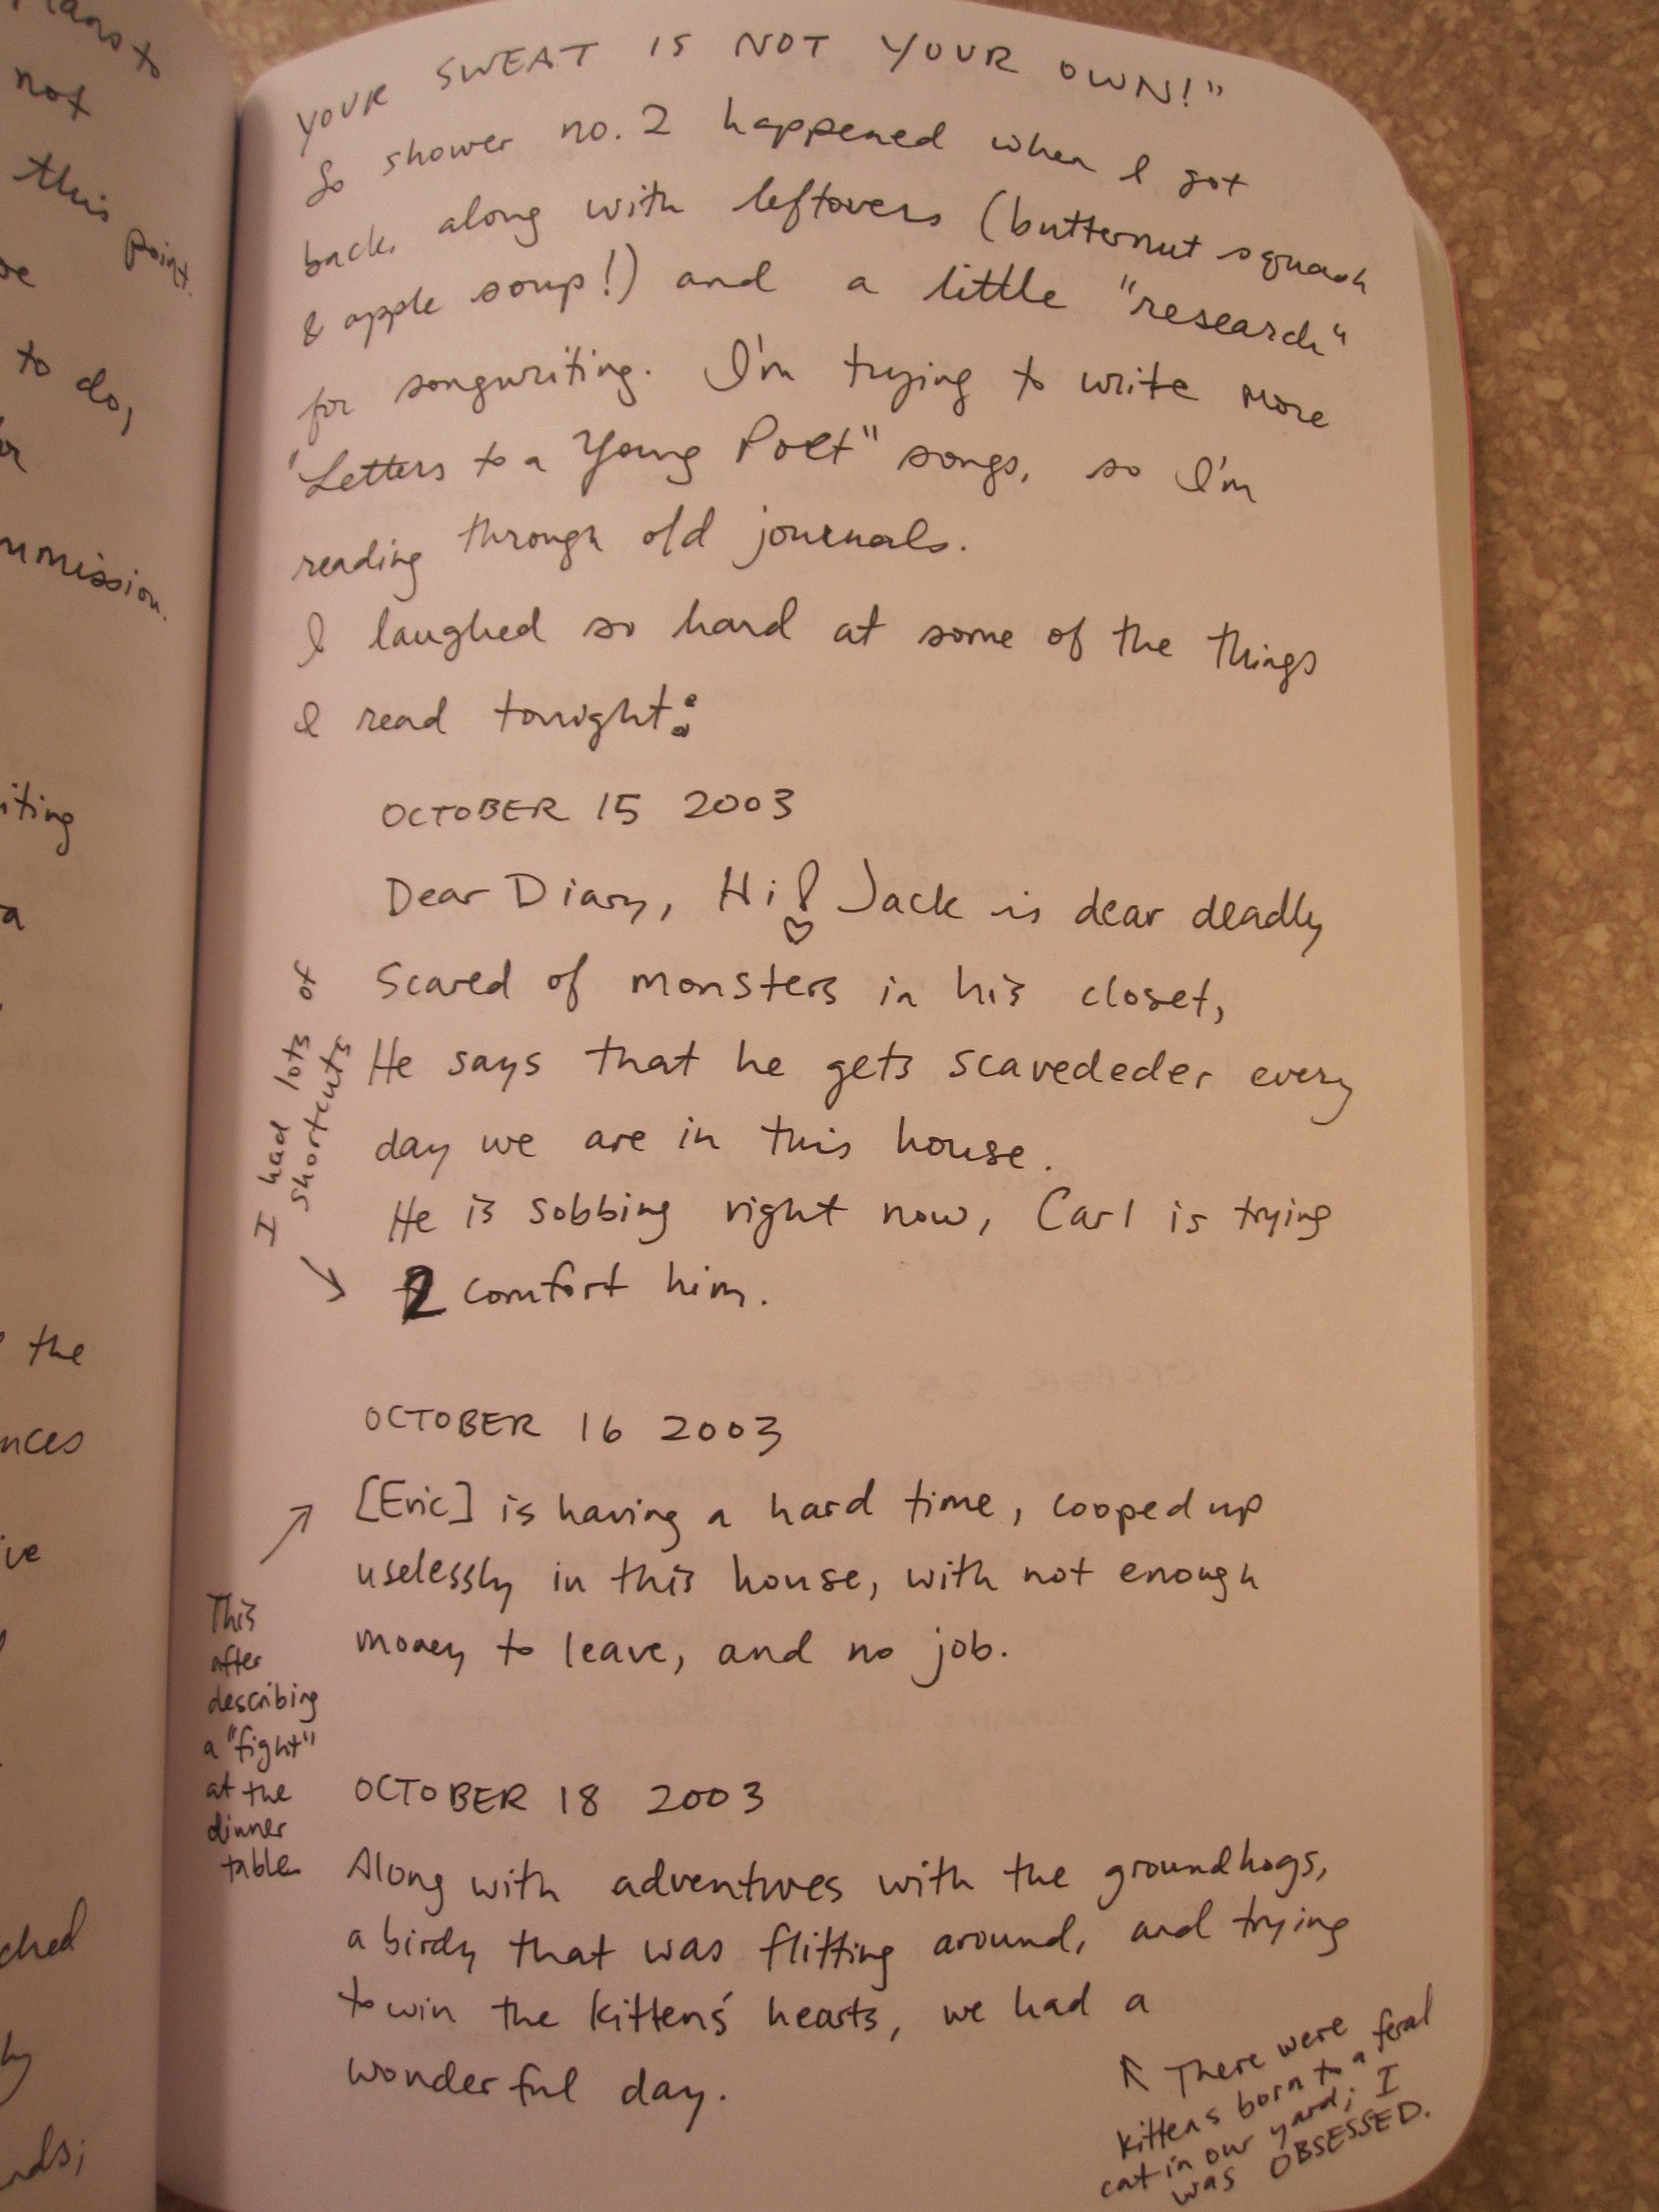 lans to
not
this point.
to do,
mmission.
iting
a
the
nces
ive
ched
nds;
YOUR SWEAT IS NOT YOUR OWN!"
So shower no. 2 happened when I got
back, along with leftovers (butternut squash
& apple soup!) and a little "research"
for songwriting. I'm trying to write more
"Letters to a Young Poet" songs, so I'm
reading through old journals.
I laughed so hard at some of the things
I read tonight:
OCTOBER 15 2003
Dear Diary, Hi! Jack is dear deadly
scared of monsters in his closet,
He says that he gets scavededer every
day we are in this house.
He is sobbing right now, Carl is trying
2 comfort him.
I had lots of
shortcuts
OCTOBER 16 2003
[Eric] is having a hard time, cooped up
uselessly in this house, with not enough
money to leave, and no job.
This
after
describing
a "fight"
at the
dinner
table
OCTOBER 18 2003
Along with adventures with the groundhogs,
a birdy that was flitting around, and trying
to win the kittens' hearts, we had a
wonderful day.
There were
kittens born to a feral
cat in our yard; I
was OBSESSED.